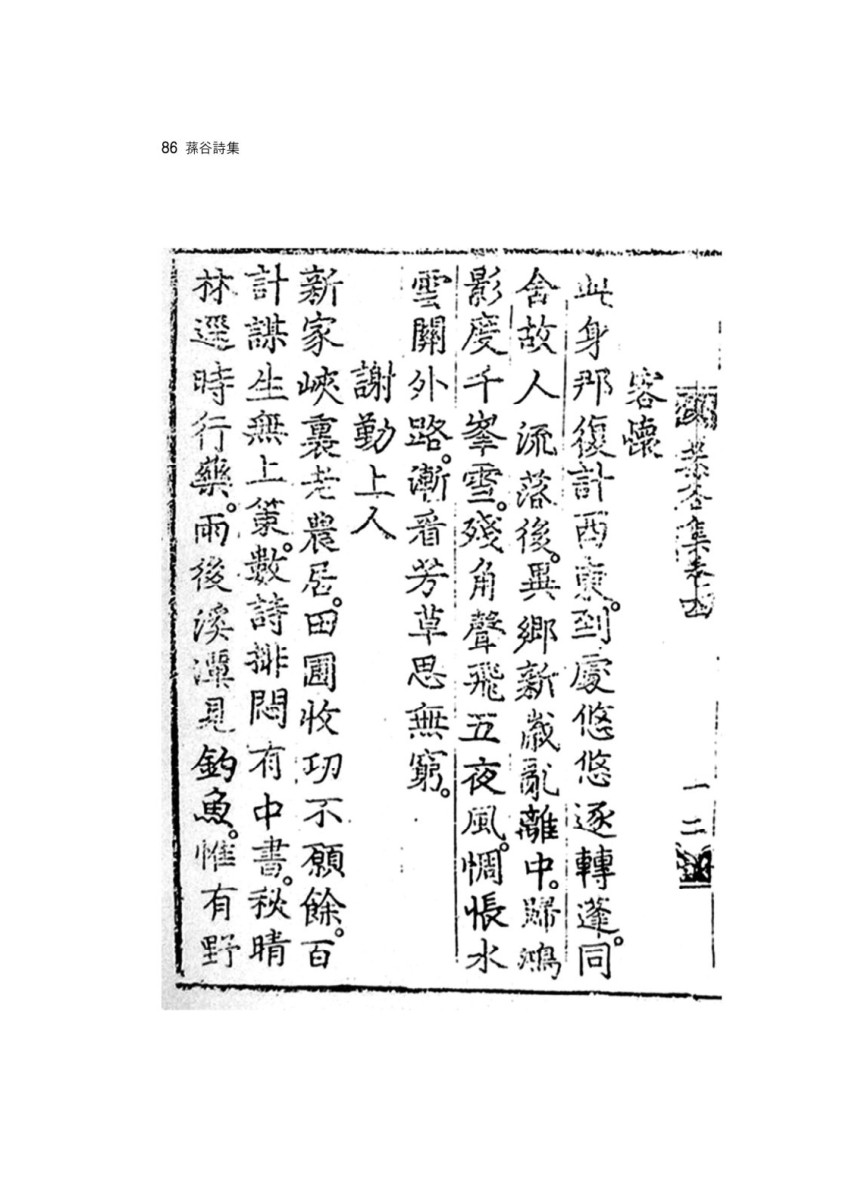 86 蓀谷詩集
蓀谷集卷四
一二
客懷
此身那復計西東。到處悠悠逐轉蓬。同
舍故人流落後。異鄉新歲亂離中。歸鴻
影度千峯雪。殘角聲飛五夜風。惆悵水
雲關外路。漸看芳草思無窮。
謝勤上人
新家峽裏老農居。田圃收功不願餘。百
計謀生無上策。數詩排悶有中書。秋晴
林逕時行藥。雨後溪潭見釣魚。惟有野